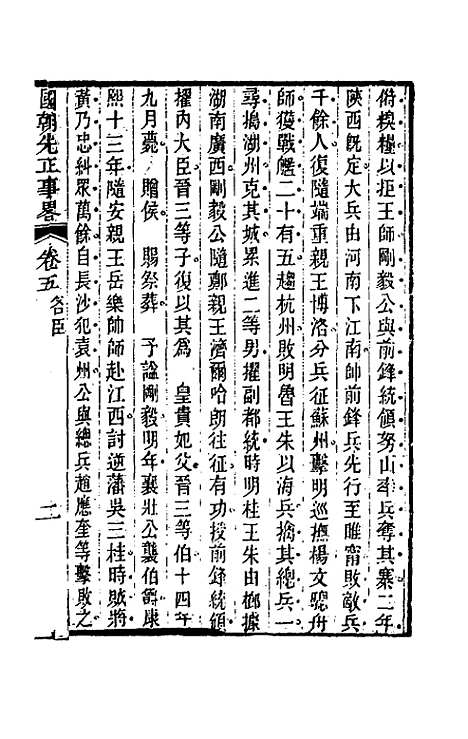 偹模糧以拒王師剛毅公與前鋒統領努山率兵奪其寨二年
陝西旣定大兵由河南下江南師前鋒兵先行至睢甯敗敵兵
千餘人復隨端重親王博洛分兵征蘇州擊明巡撫楊文驄舟
師獲戰艦二十有五趨杭州敗明魯王朱以海兵擒其總兵一
尋搗湖州克其城累進二等男擢副都統時明桂王朱由榔據
湖南廣西剛毅公隨鄭親王濟爾哈朗往征有功授前鋒統領
擢內大臣晉三等子復以其爲 皇貴妃父晉三等伯十四年
九月薨 贈侯 賜祭葬 予諡剛毅明年襄壯公襲伯爵康
熙十三年隨安親王岳樂帥師赴江西討逆藩吳三桂時賊將
黃乃忠糾眾萬餘自長沙犯袁州公與總兵趙應奎等擊敗之
國朝先正事畧 卷五 名臣 二